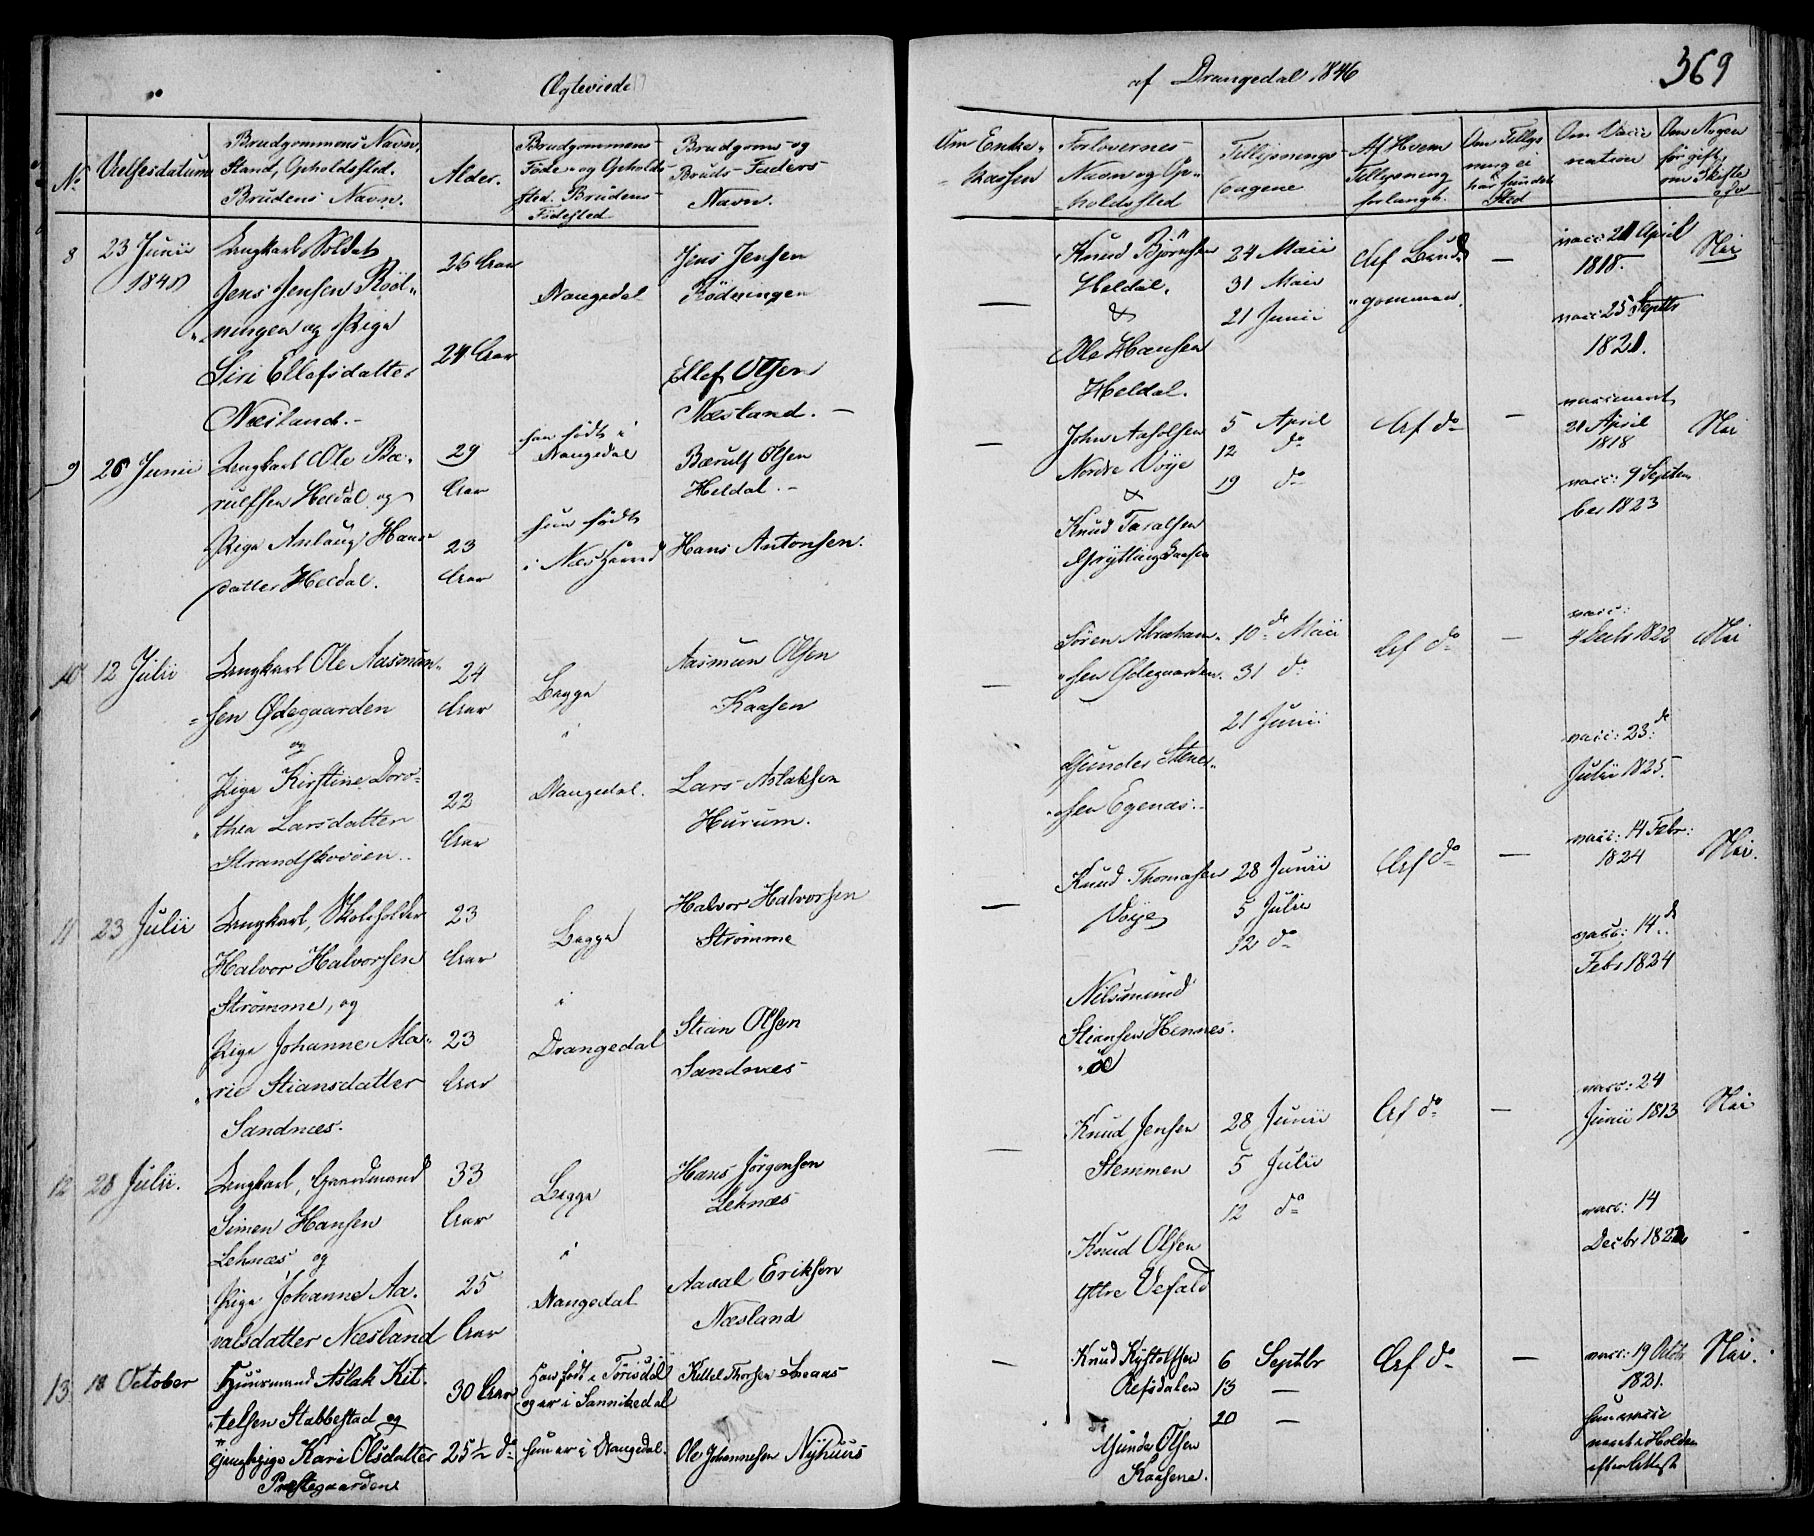 Ægteviede
af Drangedal 1846
369
No
Vielsesdatum
Brudgommens Navn,
Stand, Opholdssted.
Brudens Navn.
Alder.
Brudgommens
Føde- og Opholds
sted. Brudens
Fødested
Brudgoms- og
Bruds-Faders-
Navn.
Om Enke-
Kassen
Forlovernes-
Navn og Op-
holdssted
Tillysnings-
dagene
Af Hvem
Tillysning
forlangt.
Om Tillys
ning ei
har fundet
Sted
Om Vacci
nation
Om Nogen
før gift,
om Skifte
8
23 Junii
Ungkarl Soldat
Jens Jensen Röd-
ningen og Pige
Siri Ellefsdatter
Næsland.-
26 Aar
24 Aar
Drangedal
Jens Jensen
Rödningen
Ellef Olsen
Næsland. -
-
Knud Björnsen
Heldal.
&
Ole Hansen
Heldal.
24 Maii
31 Maii
21 Junii
Af Brud-
gommen.
-
vacc: 21 April
1818.
vacc: 25 Septbr
1821.
Nei
9
26 Junii
Ungkarl Ole Bæ-
rulfsen Heldal og
Pige Anlaug Hans-
datter Heldal.
29
Aar
23
Aar
han födt i
Drangedal
hun födt
i Næs Herred
Bærulf Olsen
Heldal. -
Hans Antonsen.
-
John Aasolsen
Nordre Voje
&
Knud Taralsen
Grytlingkaasen
5 April
12 do
19 do
Af do
-
vaccineret
21 April
1818
vacc: 9 Septem
ber 1823
Nei
10
12 Julii
Ungkarl Ole Aasmun-
sen Ødegaarden
og
Pige Kirstine Doro-
thea Larsdatter
Strandskovøen.
24
Aar
22
Aar
Begge
i
Drangedal.
Aasmun Olsen
Kaasen
Lars Aslaksen
Hurum.
-
Sören Abraham-
sen Ødegaarden.
Gunder Stener-
sen Egenæs.
10de Maii
31 do
21 Junii
Af do
-
vacc:
4 Decbr 1822
vacc: 23de
Julii 1825.
Nei
11
23 Julii
Ungkarl, Skoleholder
Halvor Halvorsen
Strømme, og
Pige Johanne Ma-
rie Stiansdatter
Sandnæs.
23
Aar
23
Aar
Begge
i
Drangedal
Halvor Halvorsen
Strømme
Stian Olsen
Sandnæs
-
Knud Thomasen
Voje
Nilsmund
Stiansen Hennes-
ø
28 Junii
5 Julii
12 do
Af do
-
vacc: 14 Febr:
1824
vacc: 14d
Febr 1824
Nei.
12
28 Julii.
Ungkarl, Gaardmand
Simen Hansen
Lehnæs og
Pige Johanne Aa-
valsdatter Næsland
33
Aar
25
Aar
Begge
i
Drangedal
Hans Jørgensen
Lehnæs
Aaval Eriksen
Næsland
Knud Jensen
Stemmen
Knud Olsen
Yttre Vefald
28 Junii
5 Julii
12 do
Af do
-
vacc: 24
Junii 1813
vacc: 14
Decbr 1822
Nei
13
18 October
Huusmand Aslak Kit-
telsen Stabbestad og
Pige Kari Olsdatter
Præstegaarden
30 Aar
25½ do
Han födt i Törisdal
og er i Sannikedal
hun er i Drangedal.
Kittel Thorsen
Ole Johannesen Nyhuus
-
Knud Kystolsen
Refsdalen
Gunder Olsen
Kaasene.
6 Septbr
13 -
20 -
Af do
-
vacc: 19 Octbr
1821.
hun vacci
neret i Holden
efter Attest
Nei.